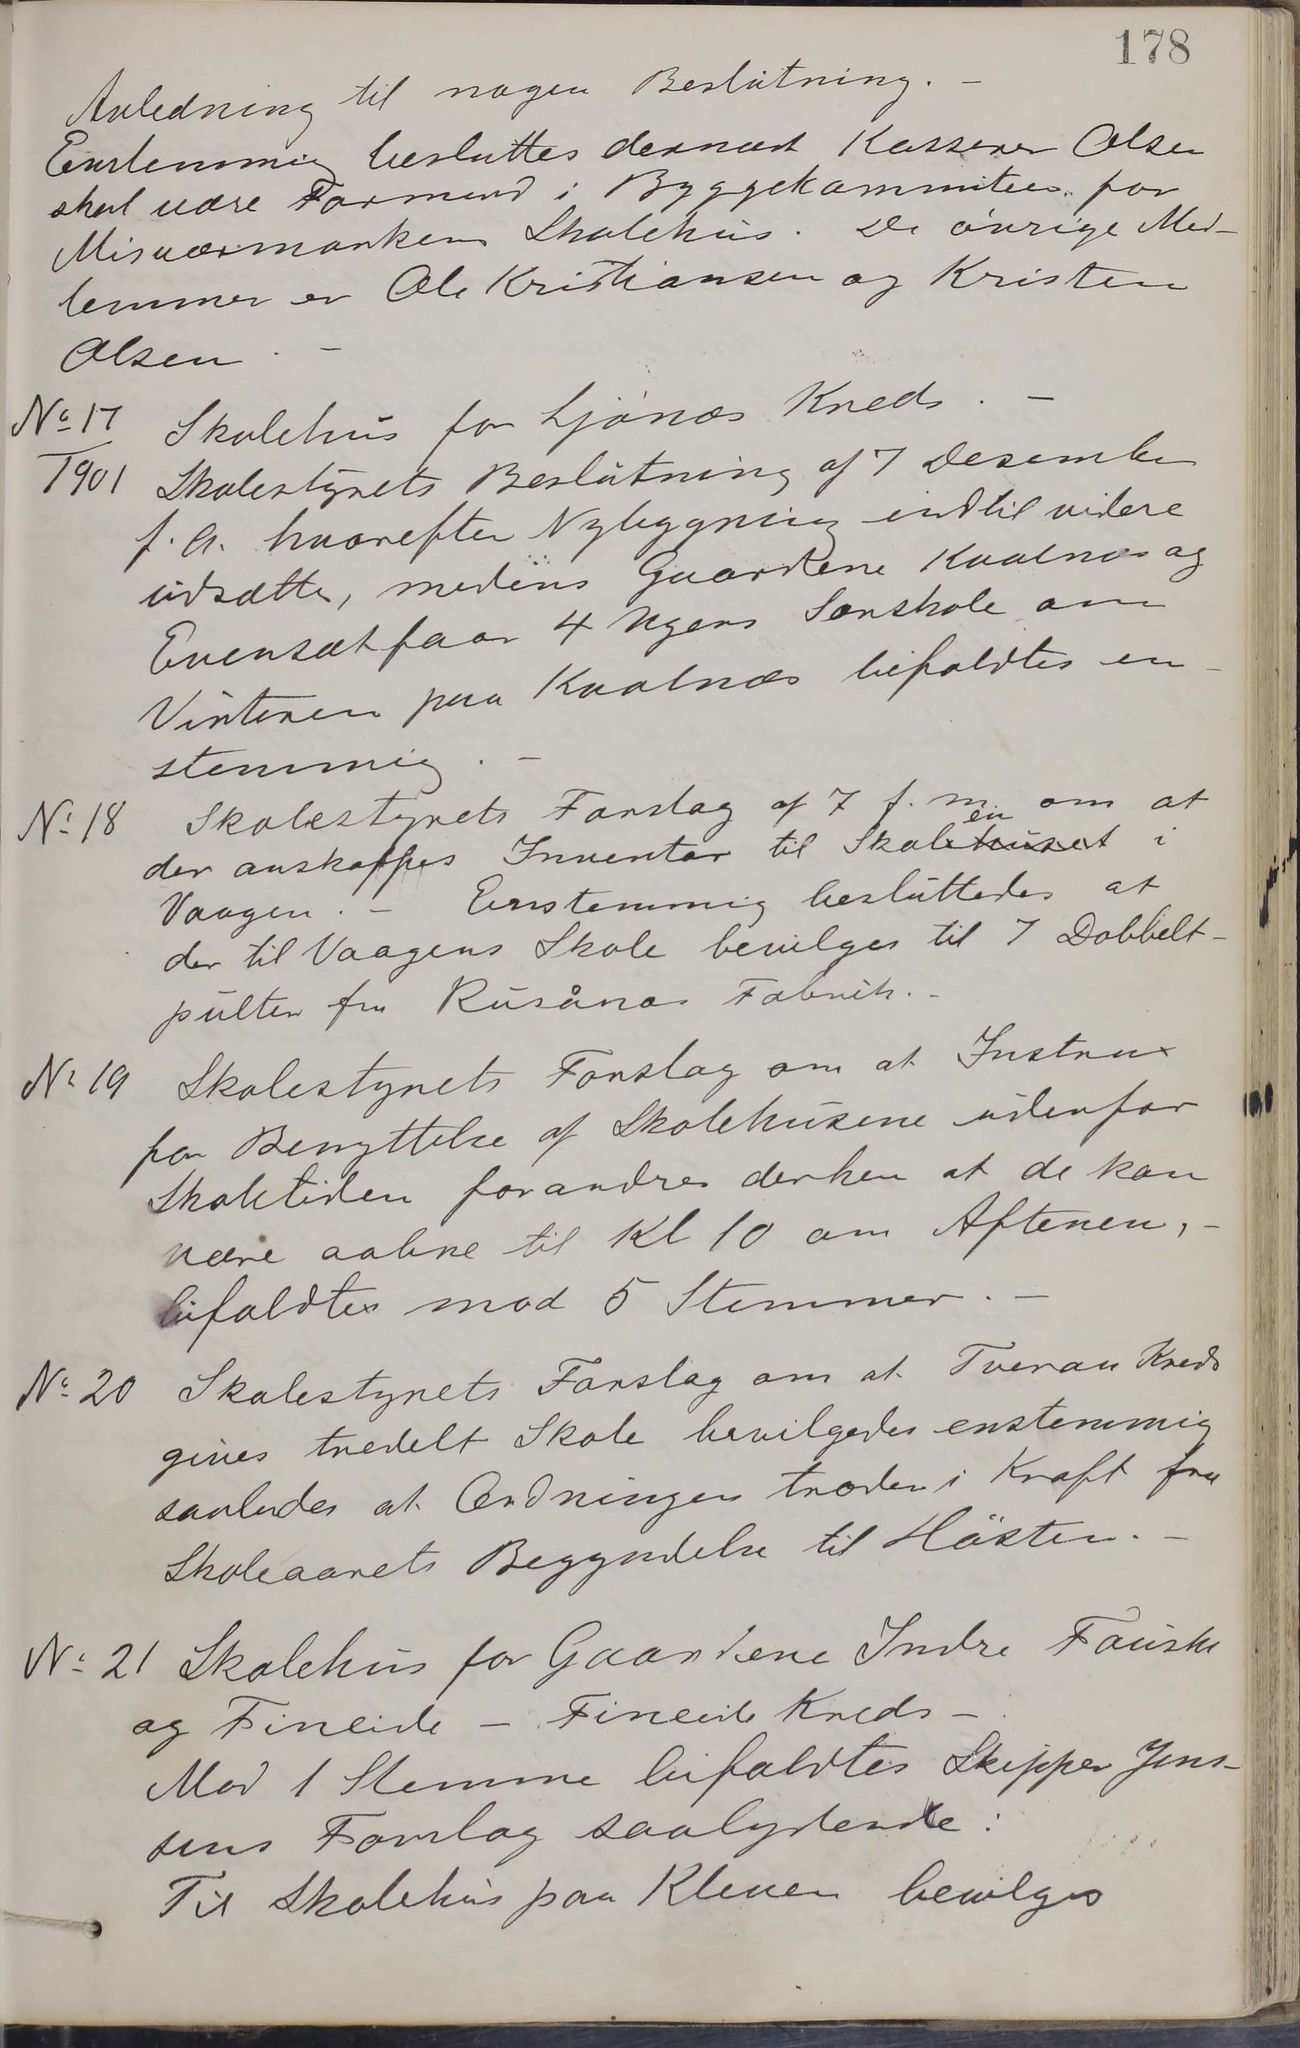 178
Anledning til nogen Beslutning. -
Enstemmig besluttes dernæst Kasserer Olsen
skal være Formand i Byggekommiteen for
Misværmarkens Skolehus. De øvrige Med-
lemmer er Ole Kristiansen og Kristen
Olsen. -
No 17 Skolehus for Ljønæs Kreds. -
1901 Skolestyrets Beslutning af 7 Desember
f. A. hvorefter Nybygning indtil videre
udsættes, medens Gaardene Kvalnæs og
Evensæt faar 4 Ugers Særskole om
Vinteren paa Kvalnæs bifaldtes en-
stemmig. -
No 18 Skolestyrets Forslag af 7 f. m. om at
der anskaffes Inventar til Skolehuset en i
Vaagen. - Enstemmig besluttedes at
der til Vaagens Skole bevilges til 7 Dobbelt-
pulter fra Rusånes Fabrik. -
No 19 Skolestyrets Forslag om at Instrux
for Benyttelse af Skolehusene udenfor
Skoletiden forandres derhen at de kan
være aabne til Kl 10 om Aftenen, -
bifaldtes mod 5 Stemmer. -
No 20 Skolestyrets Forslag om at Tveraa Kreds
gives tredelt Skole bevilgedes enstemmig
saaledes at Ordningen træder i Kraft fra
Skoleaarets Begyndelse til Høsten. -
No 21 Skolehus for Gaardene Indre Fauske
og Fineide - Fineide Kreds -
Mod 1 Stemme bifaldtes Skipper Jens-
sens Forslag saalydende:
Til Skolehus paa Kleven bevilges